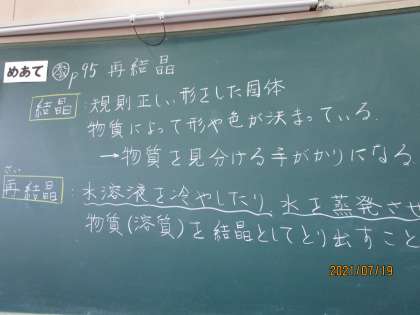 めあて p95 再結晶
結晶:規則正しい形をした固体
物質によって形や色が決まっている.
→物質を見分ける手がかりになる.
さい
再結晶:水溶液を冷やしたり、水を蒸発させ
物質(溶質)を結晶としてとり出すこと
2021/07/19